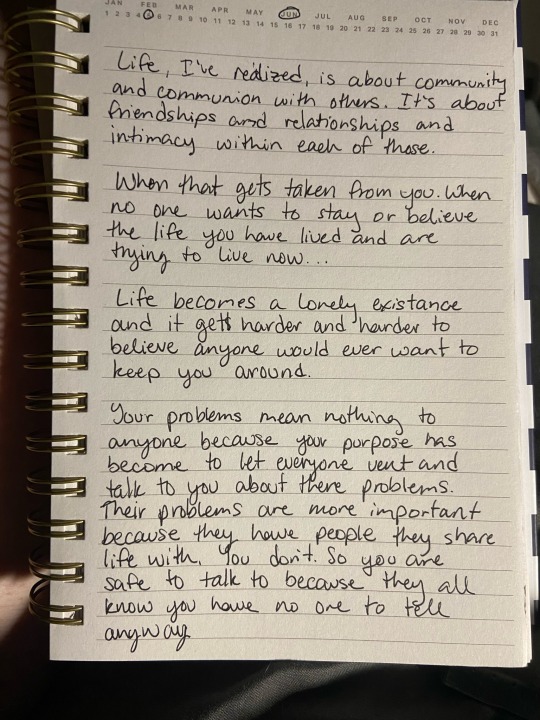 JAN FEB MAR APR MAY JUN JUL AUG SEP OCT NOV DEC
1 2 3 4 5 6 7 8 9 10 11 12 13 14 15 16 17 18 19 20 21 22 23 24 25 26 27 28 29 30 31
Life, I've realized, is about community
and communion with others. It's about
friendships and relationships and
intimacy within each of those.
When that gets taken from you. When
no one wants to stay or believe
the life you have lived and are
trying to live now...
Life becomes a lonely existance
and it gets harder and harder to
believe anyone would ever want to
keep you around.
Your problems mean nothing to
anyone because your purpose has
become to let everyone vent and
talk to you about there problems.
Their problems are more important
because they have people they share
life with. You don't. So you are
safe to talk to because they all
know you have no one to tell
anyway